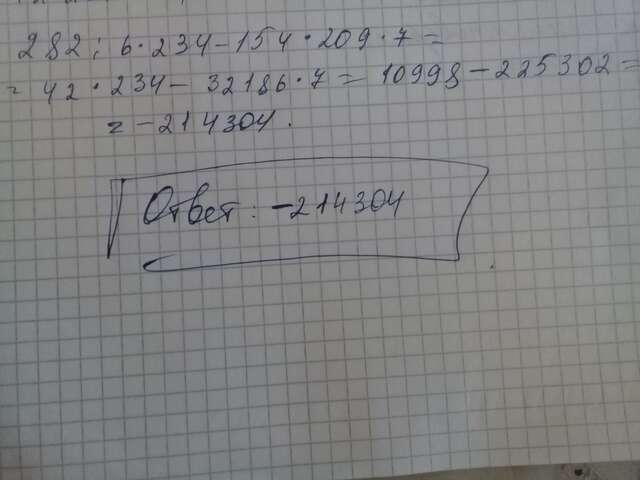 282 : 6 · 234 - 154 · 209 · 7 =
= 42 · 234 - 32186 · 7 = 10998 - 225302 =
= -214304.
Ответ: -214304